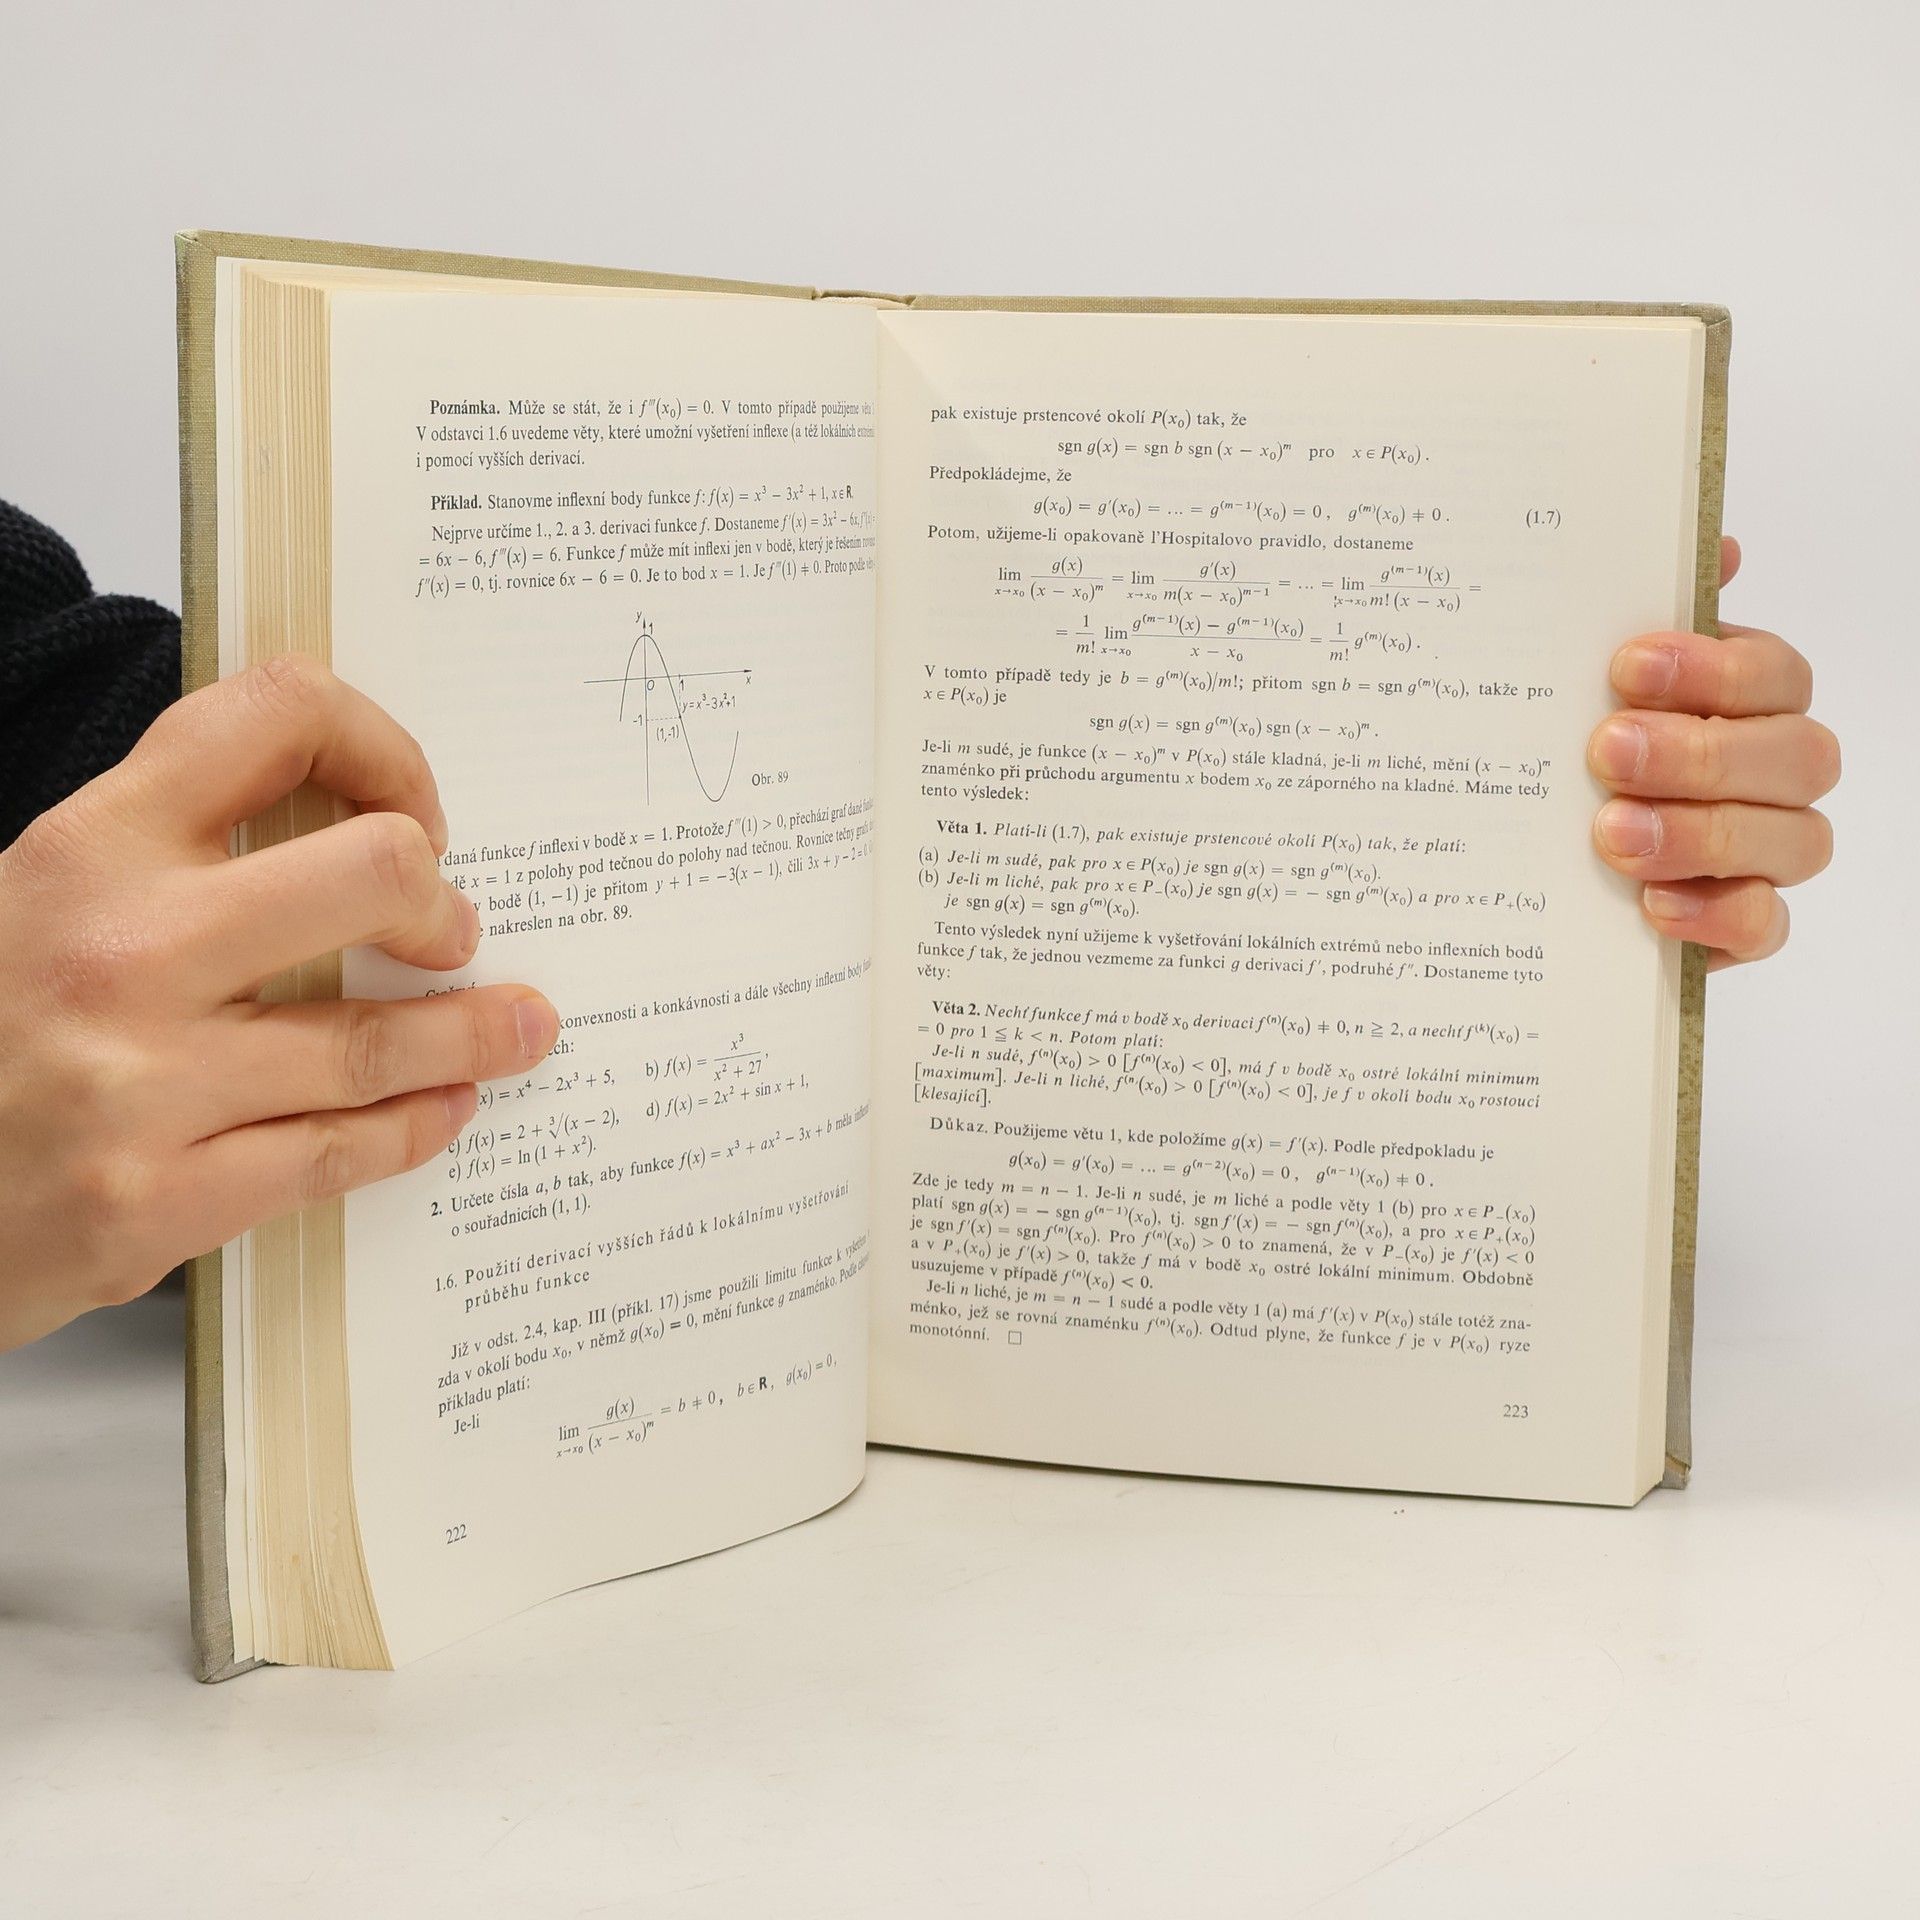 Poznámka. Může se stát, že i f‴(x₀) = 0. V tomto případě použijeme
V odstavci 1.6 uvedeme věty, které umožní vyšetření inflexe (a též lokálních
i pomocí vyšších derivací.
Příklad. Stanovme inflexní body funkce f: f(x) = x³ − 3x² + 1, x ∈ R.
Nejprve určíme 1., 2. a 3. derivaci funkce f. Dostaneme f′(x) = 3x² − 6x, f″(x) =
= 6x − 6, f‴(x) = 6. Funkce f může mít inflexi jen v bodě, který je řešením
f″(x) = 0, tj. rovnice 6x − 6 = 0. Je to bod x = 1. Je f‴(1) ≠ 0. Proto podle
y
1
0 1 x
y=x³-3x²+1
-1
(1,-1)
Obr. 89
daná funkce f inflexi v bodě x = 1. Protože f‴(1) > 0, přechází graf dané
dě x = 1 z polohy pod tečnou do polohy nad tečnou. Rovnice tečny grafu
v bodě (1, −1) je přitom y + 1 = −3(x − 1), čili 3x + y − 2 = 0.
nakreslen na obr. 89.
konvexnosti a konkávnosti a dále všechny inflexní body
ech:
x) = x⁴ − 2x³ + 5, b) f(x) = x³/(x² + 27),
c) f(x) = 2 + ∛(x − 2), d) f(x) = 2x² + sin x + 1,
e) f(x) = ln (1 + x²).
2. Určete čísla a, b tak, aby funkce f(x) = x³ + ax² − 3x + b měla
o souřadnicích (1, 1).
1.6. Použití derivací vyšších řádů k lokálnímu vyšetřování
průběhu funkce
Již v odst. 2.4, kap. III (příkl. 17) jsme použili limitu funkce k
zda v okolí bodu x₀, v němž g(x₀) = 0, mění funkce g znaménko. Podle
příkladu platí:
Je-li
lim x→x₀ g(x)/(x − x₀)ᵐ = b ≠ 0, b ∈ R, g(x₀) = 0,
222
pak existuje prstencové okolí P(x₀) tak, že
sgn g(x) = sgn b sgn (x − x₀)ᵐ pro x ∈ P(x₀).
Předpokládejme, že
g(x₀) = g′(x₀) = ... = g⁽ᵐ⁻¹⁾(x₀) = 0, g⁽ᵐ⁾(x₀) ≠ 0. (1.7)
Potom, užijeme-li opakovaně l’Hospitalovo pravidlo, dostaneme
lim x→x₀ g(x)/(x − x₀)ᵐ = lim x→x₀ g′(x)/m(x − x₀)ᵐ⁻¹ = ... = lim x→x₀ g⁽ᵐ⁻¹⁾(x)/m! (x − x₀) =
= 1/m! lim x→x₀ (g⁽ᵐ⁻¹⁾(x) − g⁽ᵐ⁻¹⁾(x₀))/(x − x₀) = 1/m! g⁽ᵐ⁾(x₀).
V tomto případě tedy je b = g⁽ᵐ⁾(x₀)/m!; přitom sgn b = sgn g⁽ᵐ⁾(x₀), takže pro
x ∈ P(x₀) je
sgn g(x) = sgn g⁽ᵐ⁾(x₀) sgn (x − x₀)ᵐ.
Je-li m sudé, je funkce (x − x₀)ᵐ v P(x₀) stále kladná, je-li m liché, mění (x − x₀)ᵐ
znaménko při průchodu argumentu x bodem x₀ ze záporného na kladné. Máme tedy
tento výsledek:
Věta 1. Platí-li (1.7), pak existuje prstencové okolí P(x₀) tak, že platí:
(a) Je-li m sudé, pak pro x ∈ P(x₀) je sgn g(x) = sgn g⁽ᵐ⁾(x₀).
(b) Je-li m liché, pak pro x ∈ P₋(x₀) je sgn g(x) = − sgn g⁽ᵐ⁾(x₀) a pro x ∈ P₊(x₀)
je sgn g(x) = sgn g⁽ᵐ⁾(x₀).
Tento výsledek nyní užijeme k vyšetřování lokálních extrémů nebo inflexních bodů
funkce f tak, že jednou vezmeme za funkci g derivaci f′, podruhé f″. Dostaneme tyto
věty:
Věta 2. Nechť funkce f má v bodě x₀ derivaci f⁽ⁿ⁾(x₀) ≠ 0, n ≧ 2, a nechť f⁽ᵏ⁾(x₀) =
= 0 pro 1 ≦ k < n. Potom platí:
Je-li n sudé, f⁽ⁿ⁾(x₀) > 0 [f⁽ⁿ⁾(x₀) < 0], má f v bodě x₀ ostré lokální minimum
[maximum]. Je-li n liché, f⁽ⁿ⁾(x₀) > 0 [f⁽ⁿ⁾(x₀) < 0], je f v okolí bodu x₀ rostoucí
[klesající].
Důkaz. Použijeme větu 1, kde položíme g(x) = f′(x). Podle předpokladu je
g(x₀) = g′(x₀) = ... = g⁽ⁿ⁻²⁾(x₀) = 0, g⁽ⁿ⁻¹⁾(x₀) ≠ 0.
Zde je tedy m = n − 1. Je-li n sudé, je m liché a podle věty 1 (b) pro x ∈ P₋(x₀)
platí sgn g(x) = − sgn g⁽ⁿ⁻¹⁾(x₀), tj. sgn f′(x) = − sgn f⁽ⁿ⁾(x₀), a pro x ∈ P₊(x₀)
je sgn f′(x) = sgn f⁽ⁿ⁾(x₀). Pro f⁽ⁿ⁾(x₀) > 0 to znamená, že v P₋(x₀) je f′(x) < 0
a v P₊(x₀) je f′(x) > 0, takže f má v bodě x₀ ostré lokální minimum. Obdobně
usuzujeme v případě f⁽ⁿ⁾(x₀) < 0.
Je-li n liché, je m = n − 1 sudé a podle věty 1 (a) má f′(x) v P(x₀) stále totéž zna-
ménko, jež se rovná znaménku f⁽ⁿ⁾(x₀). Odtud plyne, že funkce f je v P(x₀) ryze
monotónní. □
223